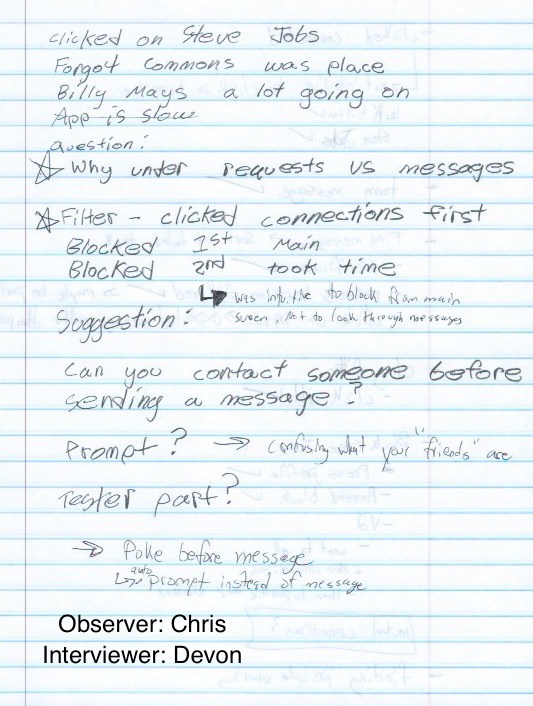 clicked on Steve Jobs
Forgot Commons was place
Billy Mays a lot going on
App is slow
question:
☆ Why under requests vs messages
☆ Filter - clicked connections first
Blocked 1st Main
Blocked 2nd took time
↳ was intuitive to block from main
screen, not to look through messages
Suggestion:
Can you contact someone before
sending a message?
Prompt? → confusing what your "friends" are
Tester part?
→ Poke before message
↳ auto prompt instead of message
Observer: Chris
Interviewer: Devon